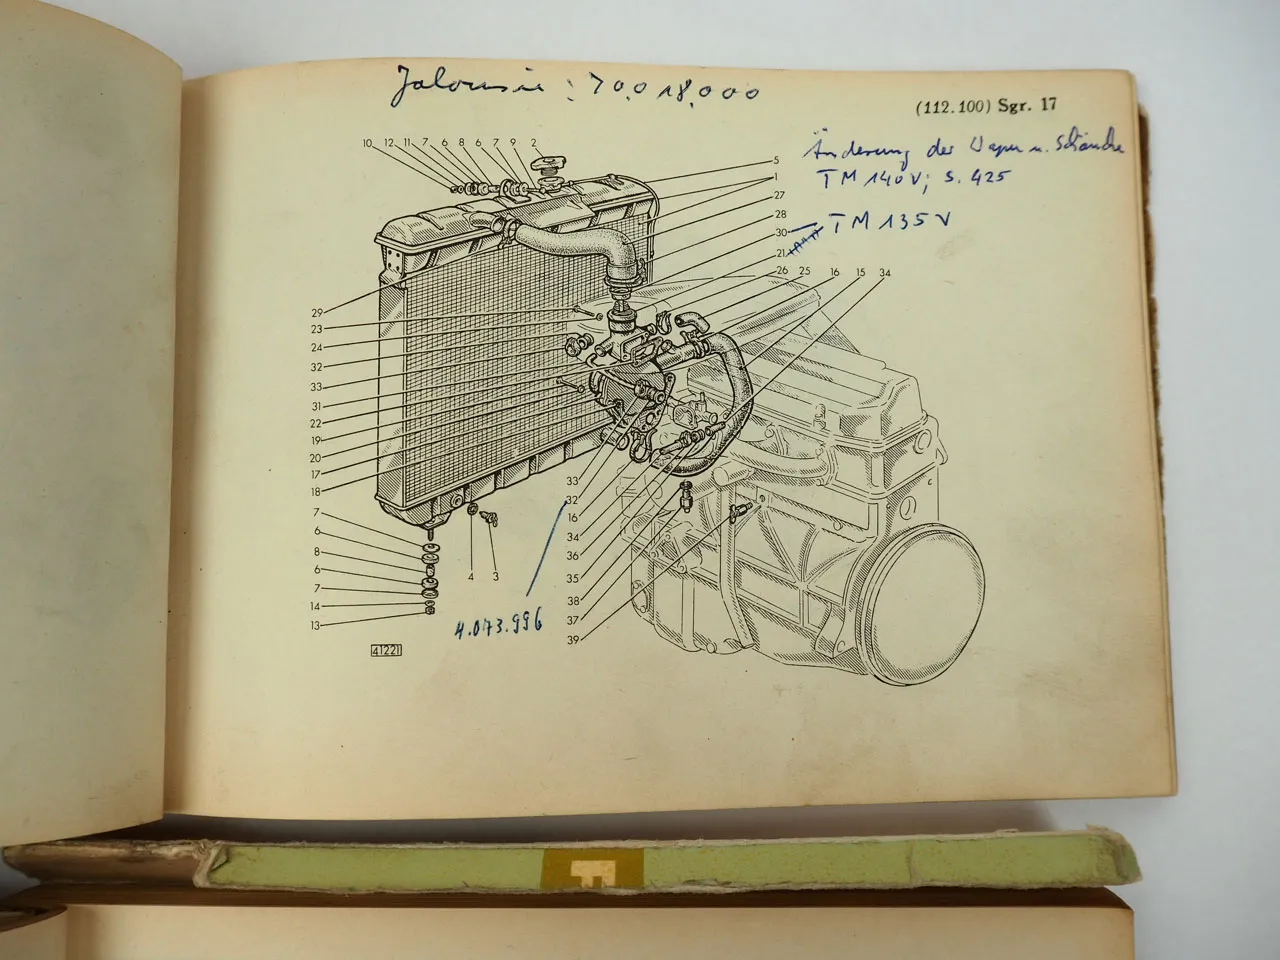 Jalousie : 70.018.000
(112.100) Sgr. 17
Änderung der Wapu u. Schläuche
TM 140 V; S. 425
TM 135 V
10 12 11 7 6 8 6 7 9 2
5
1
27
28
30
21
26 25 16 15 34
29
23
24
32
33
31
22
19
20
17
18
7
6
8
6
7
14
13
4 3
33
32
16
34
36
35
38
37
39
4.073.996
41221